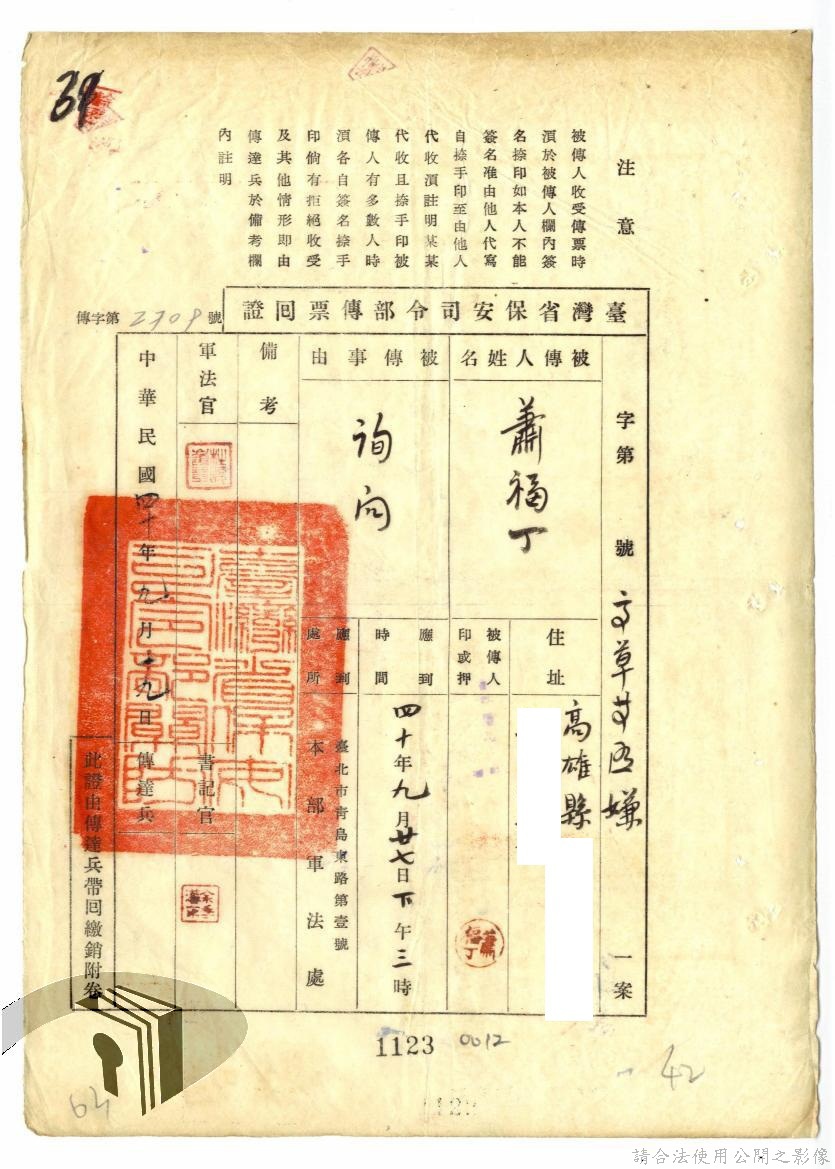 注意
被傳人收受傳票時
須於被傳人欄內簽
名捺印如本人不能
簽名准由他人代寫
自捺手印至由他人
代收須註明某某
代收且捺手印被
傳人有多數人時
須各自簽名捺手
印倘有拒絕收受
及其他情形即由
傳達兵於備考欄
內註明
臺灣省保安司令部傳票回證
傳字第2709號
字第 號 高草等匪嫌 一案
被傳人姓名
蕭福丁
住址
高雄縣
被傳人
印或押
蕭福丁
被傳事由
詢问
應到
時間
四十年九月廿七日下午三時
應到
處所
臺北市青島東路第壹號
本部軍法處
備考
軍法官
書記官
中華民國四十年九月十九日
傳達兵
此證由傳達兵帶回繳銷附卷
39
1123
0012
42
62
請合法使用公開之影像